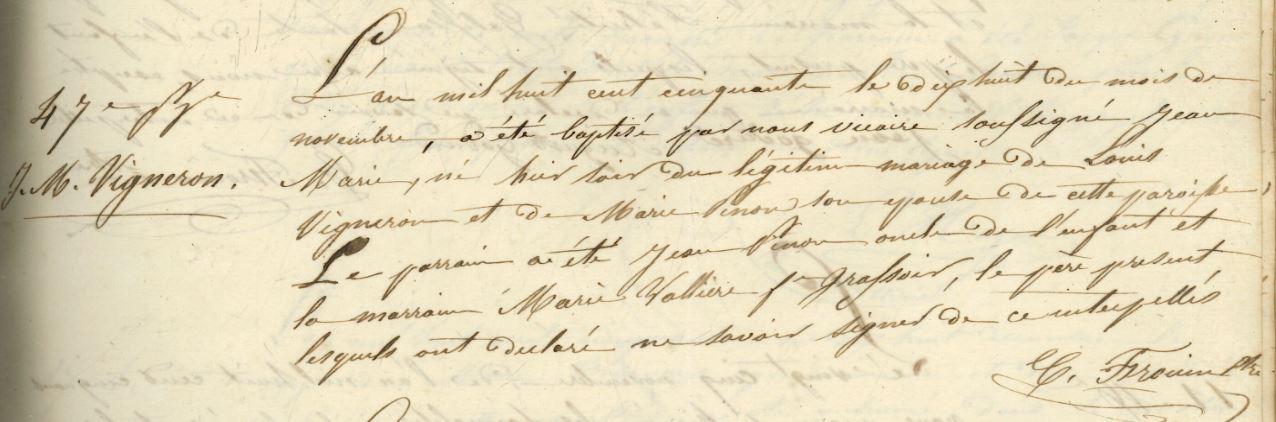 47e Bme
J. M. Vigneron.
L'an mil huit cent cinquante le dix huit du mois de
novembre, a été baptisé par nous vicaire soussigné Jean
Marie, né hier soir du légitime mariage de Louis
Vigneron et de Marie Pinon son epouse de cette paroisse,
Le parrain a été Jean Pinon oncle de l'enfant et
la marraine Marie Vallière fe Grassoir, le père présent
lesquels ont declaré ne savoir signer de ce interpellés
C. Frouin Ptre